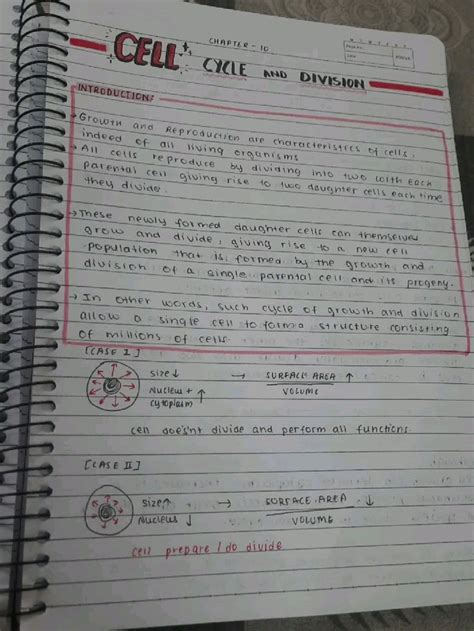 CHAPTER - 10
CELL CYCLE AND DIVISION
INTRODUCTION:
→ Growth and Reproduction are characteristics of cells,
indeed of all living organisms
→ All cells reproduce by dividing into two with each
parental cell giving rise to two daughter cells each time
they divide.
→ These newly formed daughter cells can themselves
grow and divide, giving rise to a new cell
population that is formed by the growth and
division of a single parental cell and its progeny.
→ In other words, such cycle of growth and division
allow a single cell to form a structure consisting
of millions of cells
[CASE I]
Size ↓ → SURFACE AREA ↑
Nucleus + ↑ VOLUME
cytoplasm
cell does'nt divide and perform all functions
[CASE II]
Size ↑ → SURFACE AREA ↓
Nucleus ↓ VOLUME
cell prepare / do divide